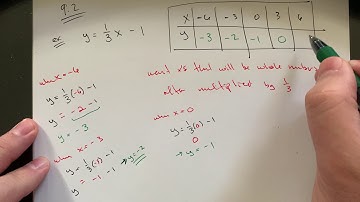 9.2
ex: y = 1/3 x - 1
x -6 -3 0 3 6
y -3 -2 -1 0 1
want x's that will be whole numbers
after multiplied by 1/3
when x = -6
y = 1/3(-6) - 1
y = -2 - 1
y = -3
when x = -3
y = 1/3(-3) - 1
y = -1 - 1
→ y = -2
when x = 0
y = 1/3(0) - 1
0
→ y = -1